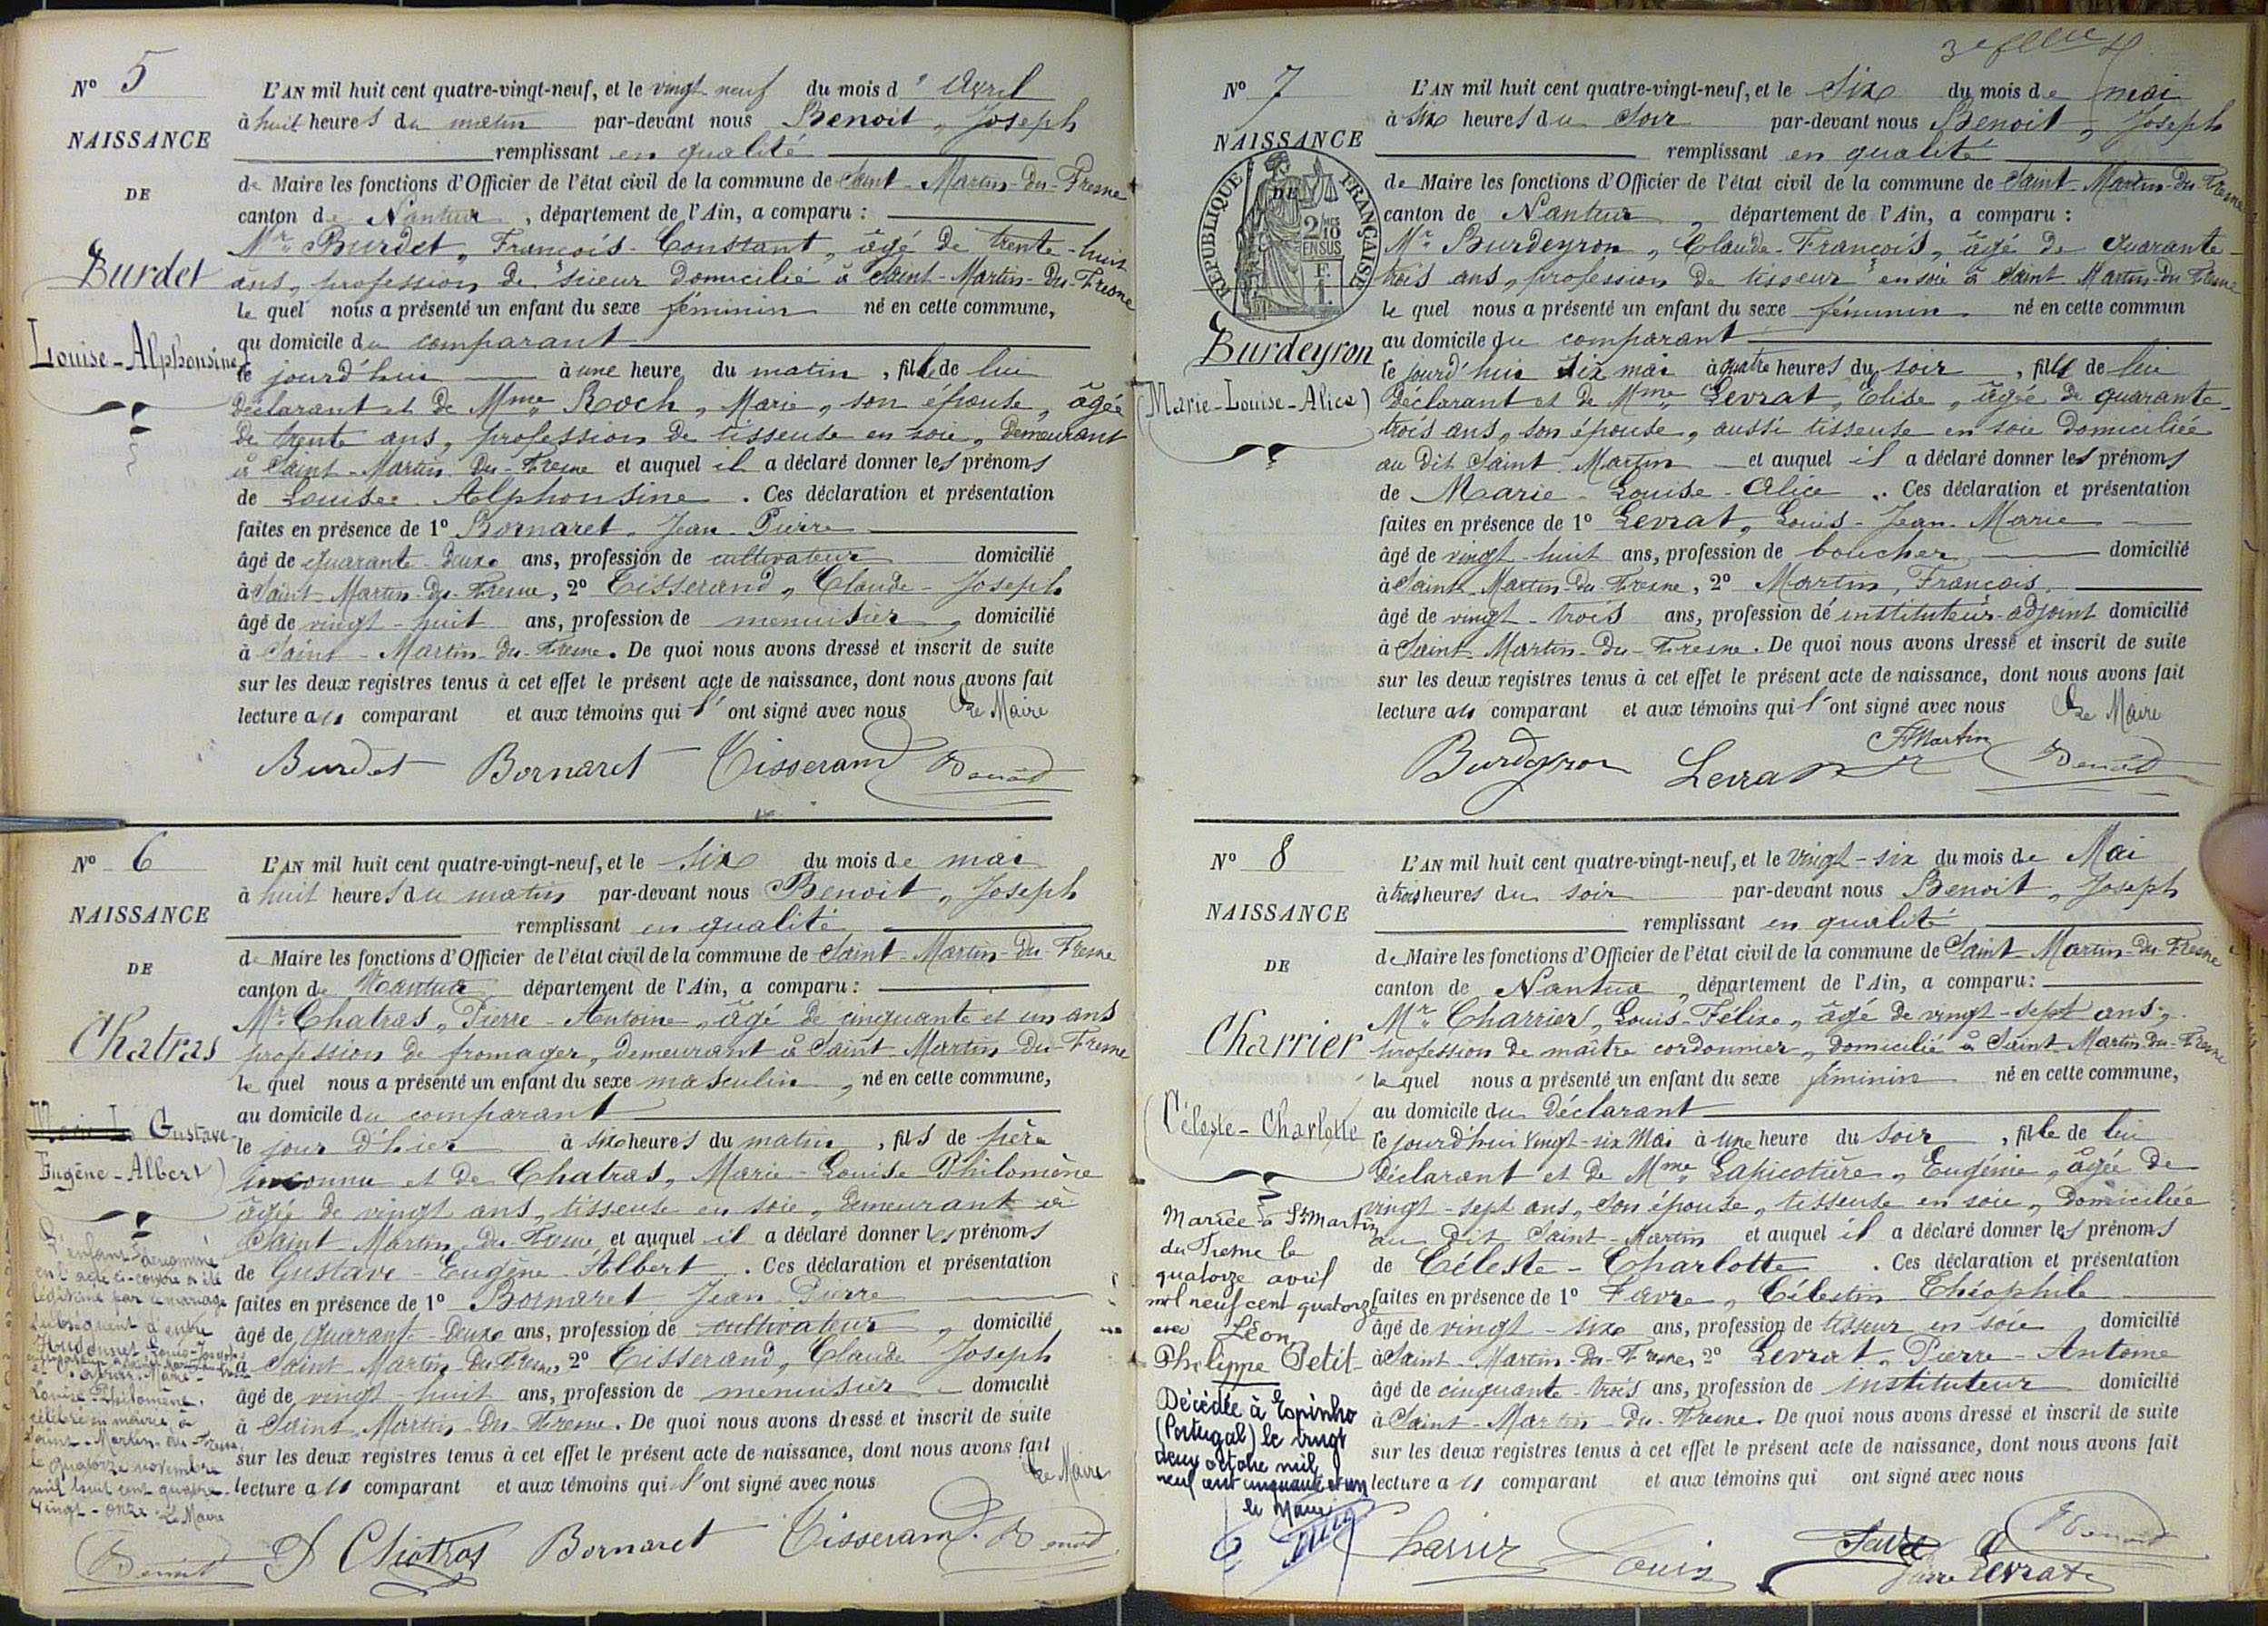 N° 5
NAISSANCE
DE
Burdet
Louise-Alphonsine
L'AN mil huit cent quatre-vingt-neuf, et le vingt neuf du mois d'Avril
à huit heures du matin par-devant nous Benoit, Joseph
remplissant en qualité
de Maire les fonctions d'Officier de l'état civil de la commune de Saint-Martin-du-Fresne
canton de Nantua, département de l'Ain, a comparu :
Mr. Burdet, François-Constant, âgé de trente-huit
ans, profession de scieur domicilié à Saint-Martin-du-Fresne
le quel nous a présenté un enfant du sexe féminin né en cette commune,
au domicile du comparant
le jourd'hui à une heure du matin, fille de lui
déclarant et de Mme Roch, Marie, son épouse, âgée
de trente ans, profession de tisseuse en soie, demeurant
à Saint-Martin-du-Fresne et auquel il a déclaré donner les prénoms
de Louise-Alphonsine. Ces déclaration et présentation
faites en présence de 1° Bornaret, Jean-Pierre
âgé de quarante-deux ans, profession de cultivateur domicilié
à Saint-Martin-du-Fresne, 2° Tisserand, Claude-Joseph
âgé de vingt-huit ans, profession de menuisier, domicilié
à Saint-Martin-du-Fresne. De quoi nous avons dressé et inscrit de suite
sur les deux registres tenus à cet effet le présent acte de naissance, dont nous avons fait
lecture au comparant et aux témoins qui l'ont signé avec nous Le Maire
Burdet Bornaret Tisserand Benoit
N° 6
NAISSANCE
DE
Chatras
Gustave-
Eugène-Albert
L'AN mil huit cent quatre-vingt-neuf, et le six du mois de mai
à huit heures du matin par-devant nous Benoit, Joseph
remplissant en qualité
de Maire les fonctions d'Officier de l'état civil de la commune de Saint-Martin-du-Fresne
canton de Nantua département de l'Ain, a comparu :
Mr. Chatras, Pierre-Antoine, âgé de cinquante et un ans
profession de fromager, demeurant à Saint-Martin-du-Fresne
le quel nous a présenté un enfant du sexe masculin, né en cette commune,
au domicile du comparant
le jour d'hier à six heures du matin, fils de père
inconnu et de Chatras, Marie-Louise-Philomène
âgée de vingt ans, tisseuse en soie, demeurant à
Saint-Martin-du-Fresne et auquel il a déclaré donner les prénoms
de Gustave-Eugène-Albert. Ces déclaration et présentation
faites en présence de 1° Bornaret Jean-Pierre
âgé de quarante-deux ans, profession de cultivateur, domicilié
à Saint-Martin-du-Fresne, 2° Tisserand, Claude Joseph
âgé de vingt-huit ans, profession de menuisier domicilié
à Saint-Martin-du-Fresne. De quoi nous avons dressé et inscrit de suite
sur les deux registres tenus à cet effet le présent acte de naissance, dont nous avons fait
lecture au comparant et aux témoins qui l'ont signé avec nous Le Maire
L'enfant dénommé
en l'acte ci-contre a été
légitimé par le mariage
subséquent d'entre
Louis-Joseph
Chatras, Marie-
Louise-Philomène,
célébré en mairie à
Saint-Martin-du-Fresne
le quatorze novembre
mil huit cent quatre-
vingt-onze. Le Maire
Benoit
P Chatras Bornaret Tisserand Benoit
3e
N° 7
NAISSANCE
DE
RÉPUBLIQUE FRANÇAISE
2/10 EN SUS
Burdeyron
(Marie-Louise-Alice)
L'AN mil huit cent quatre-vingt-neuf, et le six du mois de mai
à six heures du soir par-devant nous Benoit, Joseph
remplissant en qualité
de Maire les fonctions d'Officier de l'état civil de la commune de Saint-Martin-du-Fresne
canton de Nantua, département de l'Ain, a comparu :
Mr. Burdeyron, Claude-François, âgé de quarante-
trois ans, profession de tisseur en soie à Saint-Martin-du-Fresne
le quel nous a présenté un enfant du sexe féminin né en cette commun
au domicile du comparant
le jourd'hui six mai à quatre heures du soir, fille de lui
déclarant et de Mme Levrat, Elise, âgée de quarante-
trois ans, son épouse, aussi tisseuse en soie domiciliée
au dit Saint-Martin et auquel il a déclaré donner les prénoms
de Marie-Louise-Alice. Ces déclaration et présentation
faites en présence de 1° Levrat, Louis-Jean-Marie
âgé de vingt-huit ans, profession de boucher domicilié
à Saint-Martin-du-Fresne, 2° Martin, François,
âgé de vingt-trois ans, profession de instituteur-adjoint domicilié
à Saint-Martin-du-Fresne. De quoi nous avons dressé et inscrit de suite
sur les deux registres tenus à cet effet le présent acte de naissance, dont nous avons fait
lecture au comparant et aux témoins qui l'ont signé avec nous Le Maire
Burdeyron Levrat F Martin Benoit
N° 8
NAISSANCE
DE
Charrier
(Céleste-Charlotte
L'AN mil huit cent quatre-vingt-neuf, et le vingt-six du mois de Mai
à trois heures du soir par-devant nous Benoit, Joseph
remplissant en qualité
de Maire les fonctions d'Officier de l'état civil de la commune de Saint-Martin-du-Fresne
canton de Nantua, département de l'Ain, a comparu :
Mr. Charrier, Louis-Félix, âgé de vingt-sept ans,
profession de maître cordonnier, domicilié à Saint-Martin-du-Fresne
le quel nous a présenté un enfant du sexe féminin né en cette commune,
au domicile du déclarant
le jourd'hui vingt-six Mai à une heure du soir, fille de lui
déclarant et de Mme Lapicotière, Eugénie, âgée de
vingt-sept ans, son épouse, tisseuse en soie, domiciliée
au dit Saint-Martin et auquel il a déclaré donner les prénoms
de Céleste-Charlotte. Ces déclaration et présentation
faites en présence de 1° Favre, Célestin Théophile
âgé de vingt-six ans, profession de tisseur en soie domicilié
à Saint-Martin-du-Fresne, 2° Levrat, Pierre-Antoine
âgé de cinquante-trois ans, profession de instituteur domicilié
à Saint-Martin-du-Fresne. De quoi nous avons dressé et inscrit de suite
sur les deux registres tenus à cet effet le présent acte de naissance, dont nous avons fait
lecture au comparant et aux témoins qui ont signé avec nous
Mariée à St Martin
du Fresne le
quatorze avril
mil neuf cent quatorze
avec Léon
Philippe Petit
Décédée à Espinho
(Portugal) le vingt
deux octobre mil
neuf cent cinquante et un
le Maire
Charrier Louis Favre Benoit
Levrat